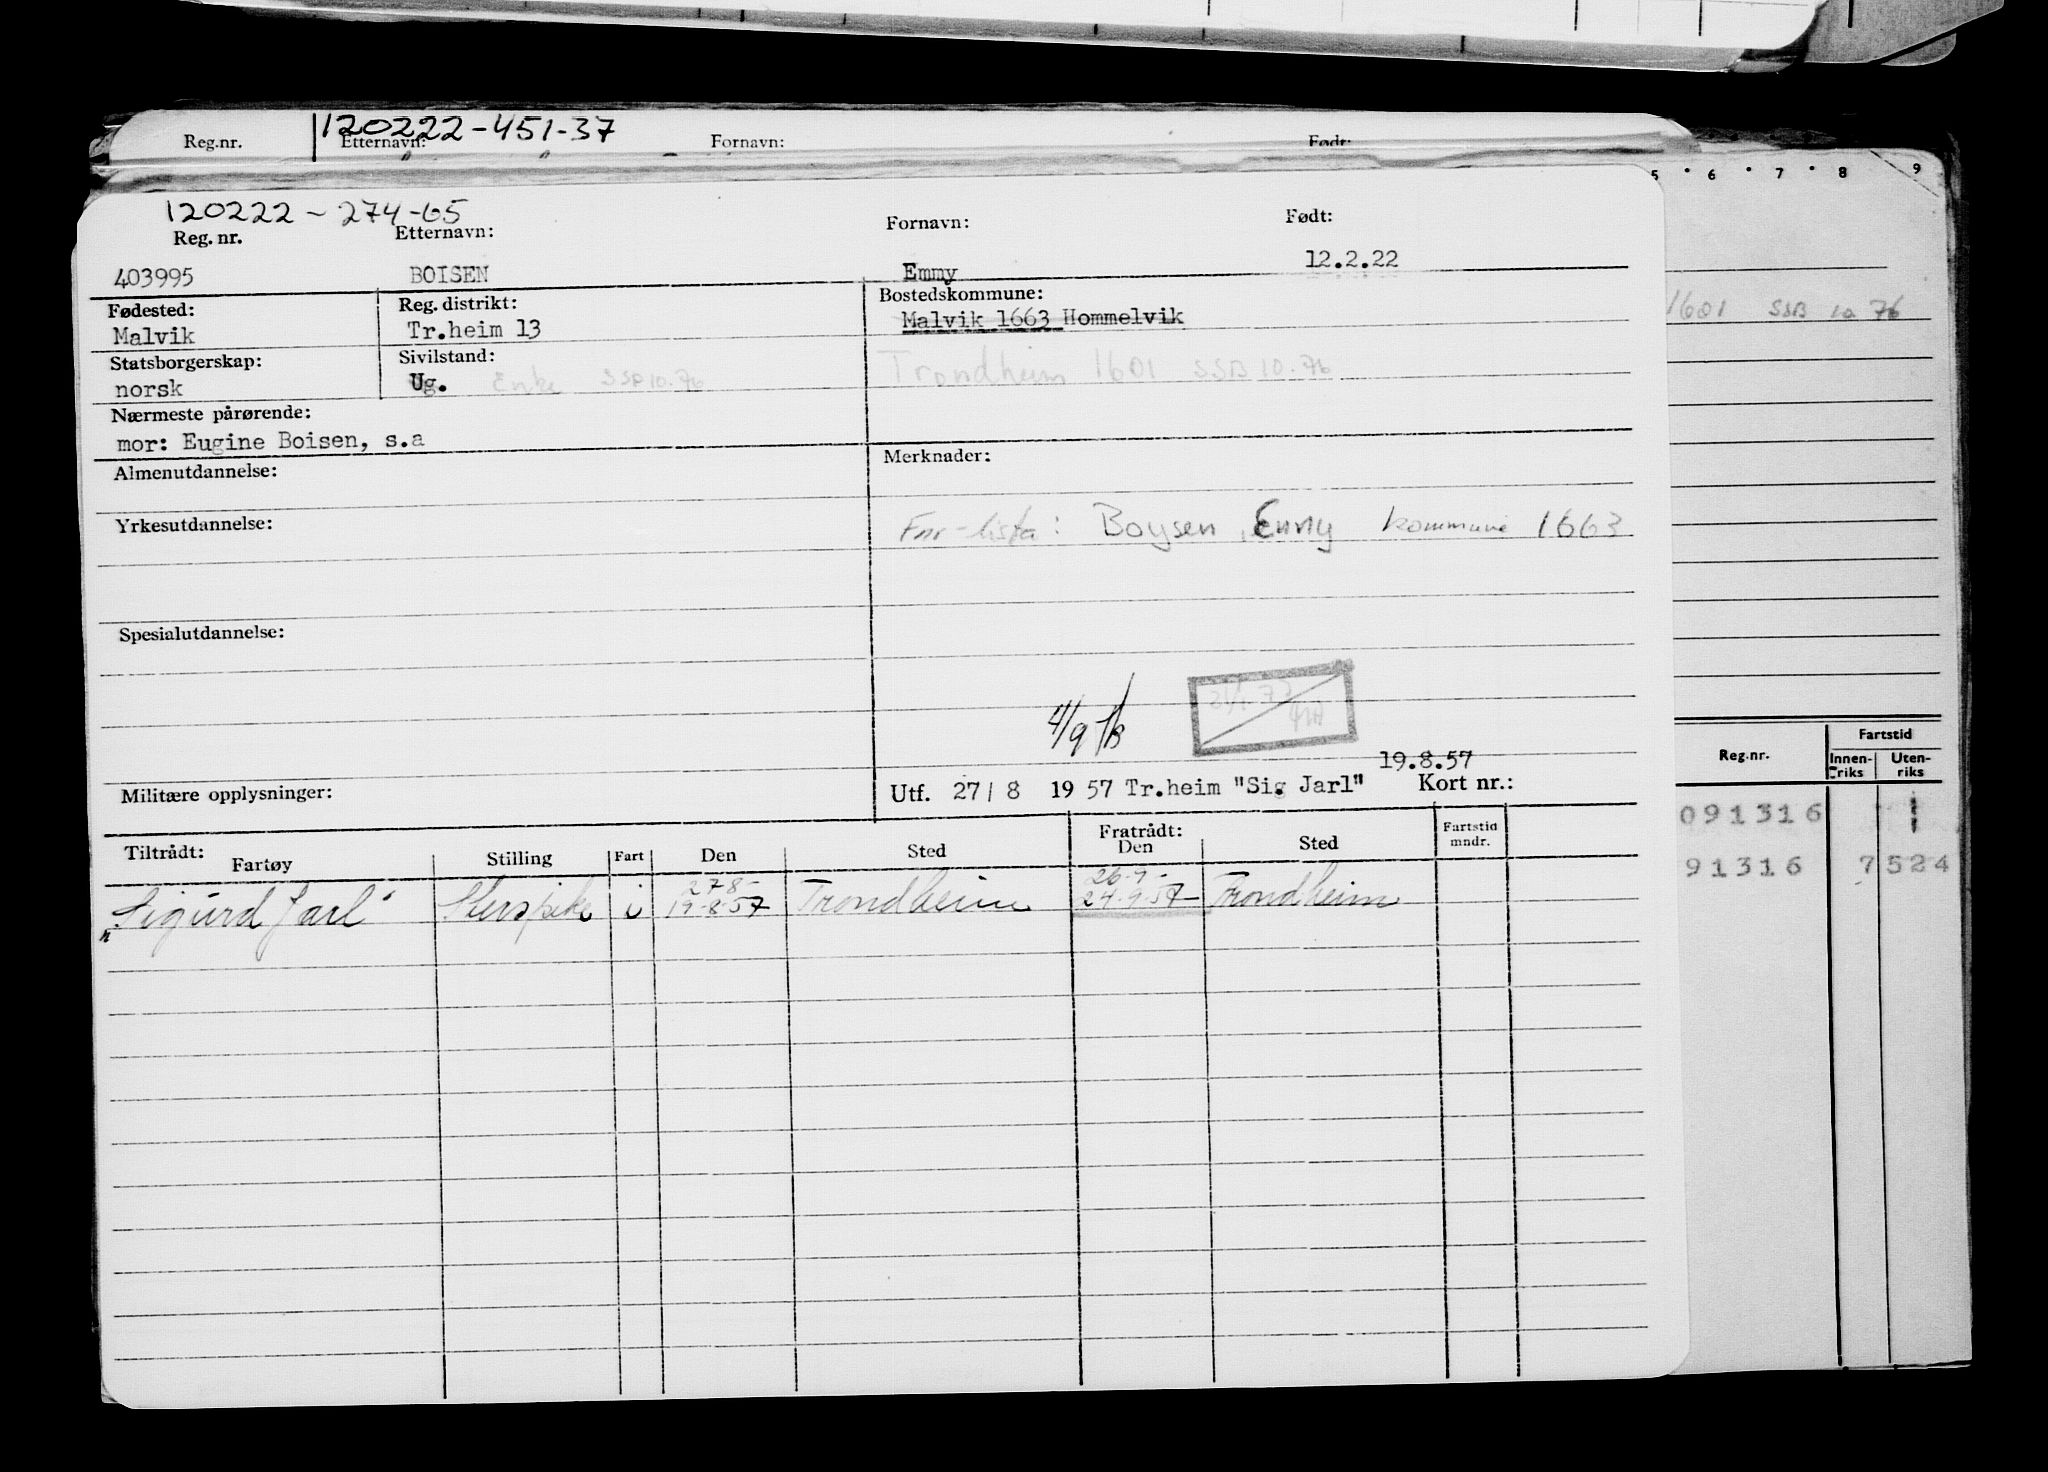 120222-451-37
Reg.nr. Etternavn: Fornavn: Født:
5 6 7 8 9
120222-274-65
Reg. nr. Etternavn: Fornavn: Født:
403995 BOISEN Emmy 12.2.22
Fødested: Reg. distrikt: Bostedskommune:
Malvik Tr.heim 13 Malvik 1663 Hommelvik
1601 SSB 10 76
Statsborgerskap: Sivilstand:
norsk Ug. Enke SSB 10.76 Trondheim 1601 SSB 10.76
Nærmeste pårørende:
mor: Eugine Boisen, s.a
Almenutdannelse: Merknader:
Yrkesutdannelse:
Fnr-lista: Boysen, Emmy kommune 1663
Spesialutdannelse:
4/9
19.8.57
Militære opplysninger: Utf. 27/8 1957 Tr.heim "Sig Jarl" Kort nr.:
Reg.nr. Fartstid
Innen-riks Uten-riks
091316 1
91316 7 524
Tiltrådt: Fratrådt:
Fartøy Stilling Fart Den Sted Den Sted Fartstid mndr.
27 8- 26-9-
"Sigurd Jarl" i 19-8-57 Trondheim 24-9-57- Trondheim